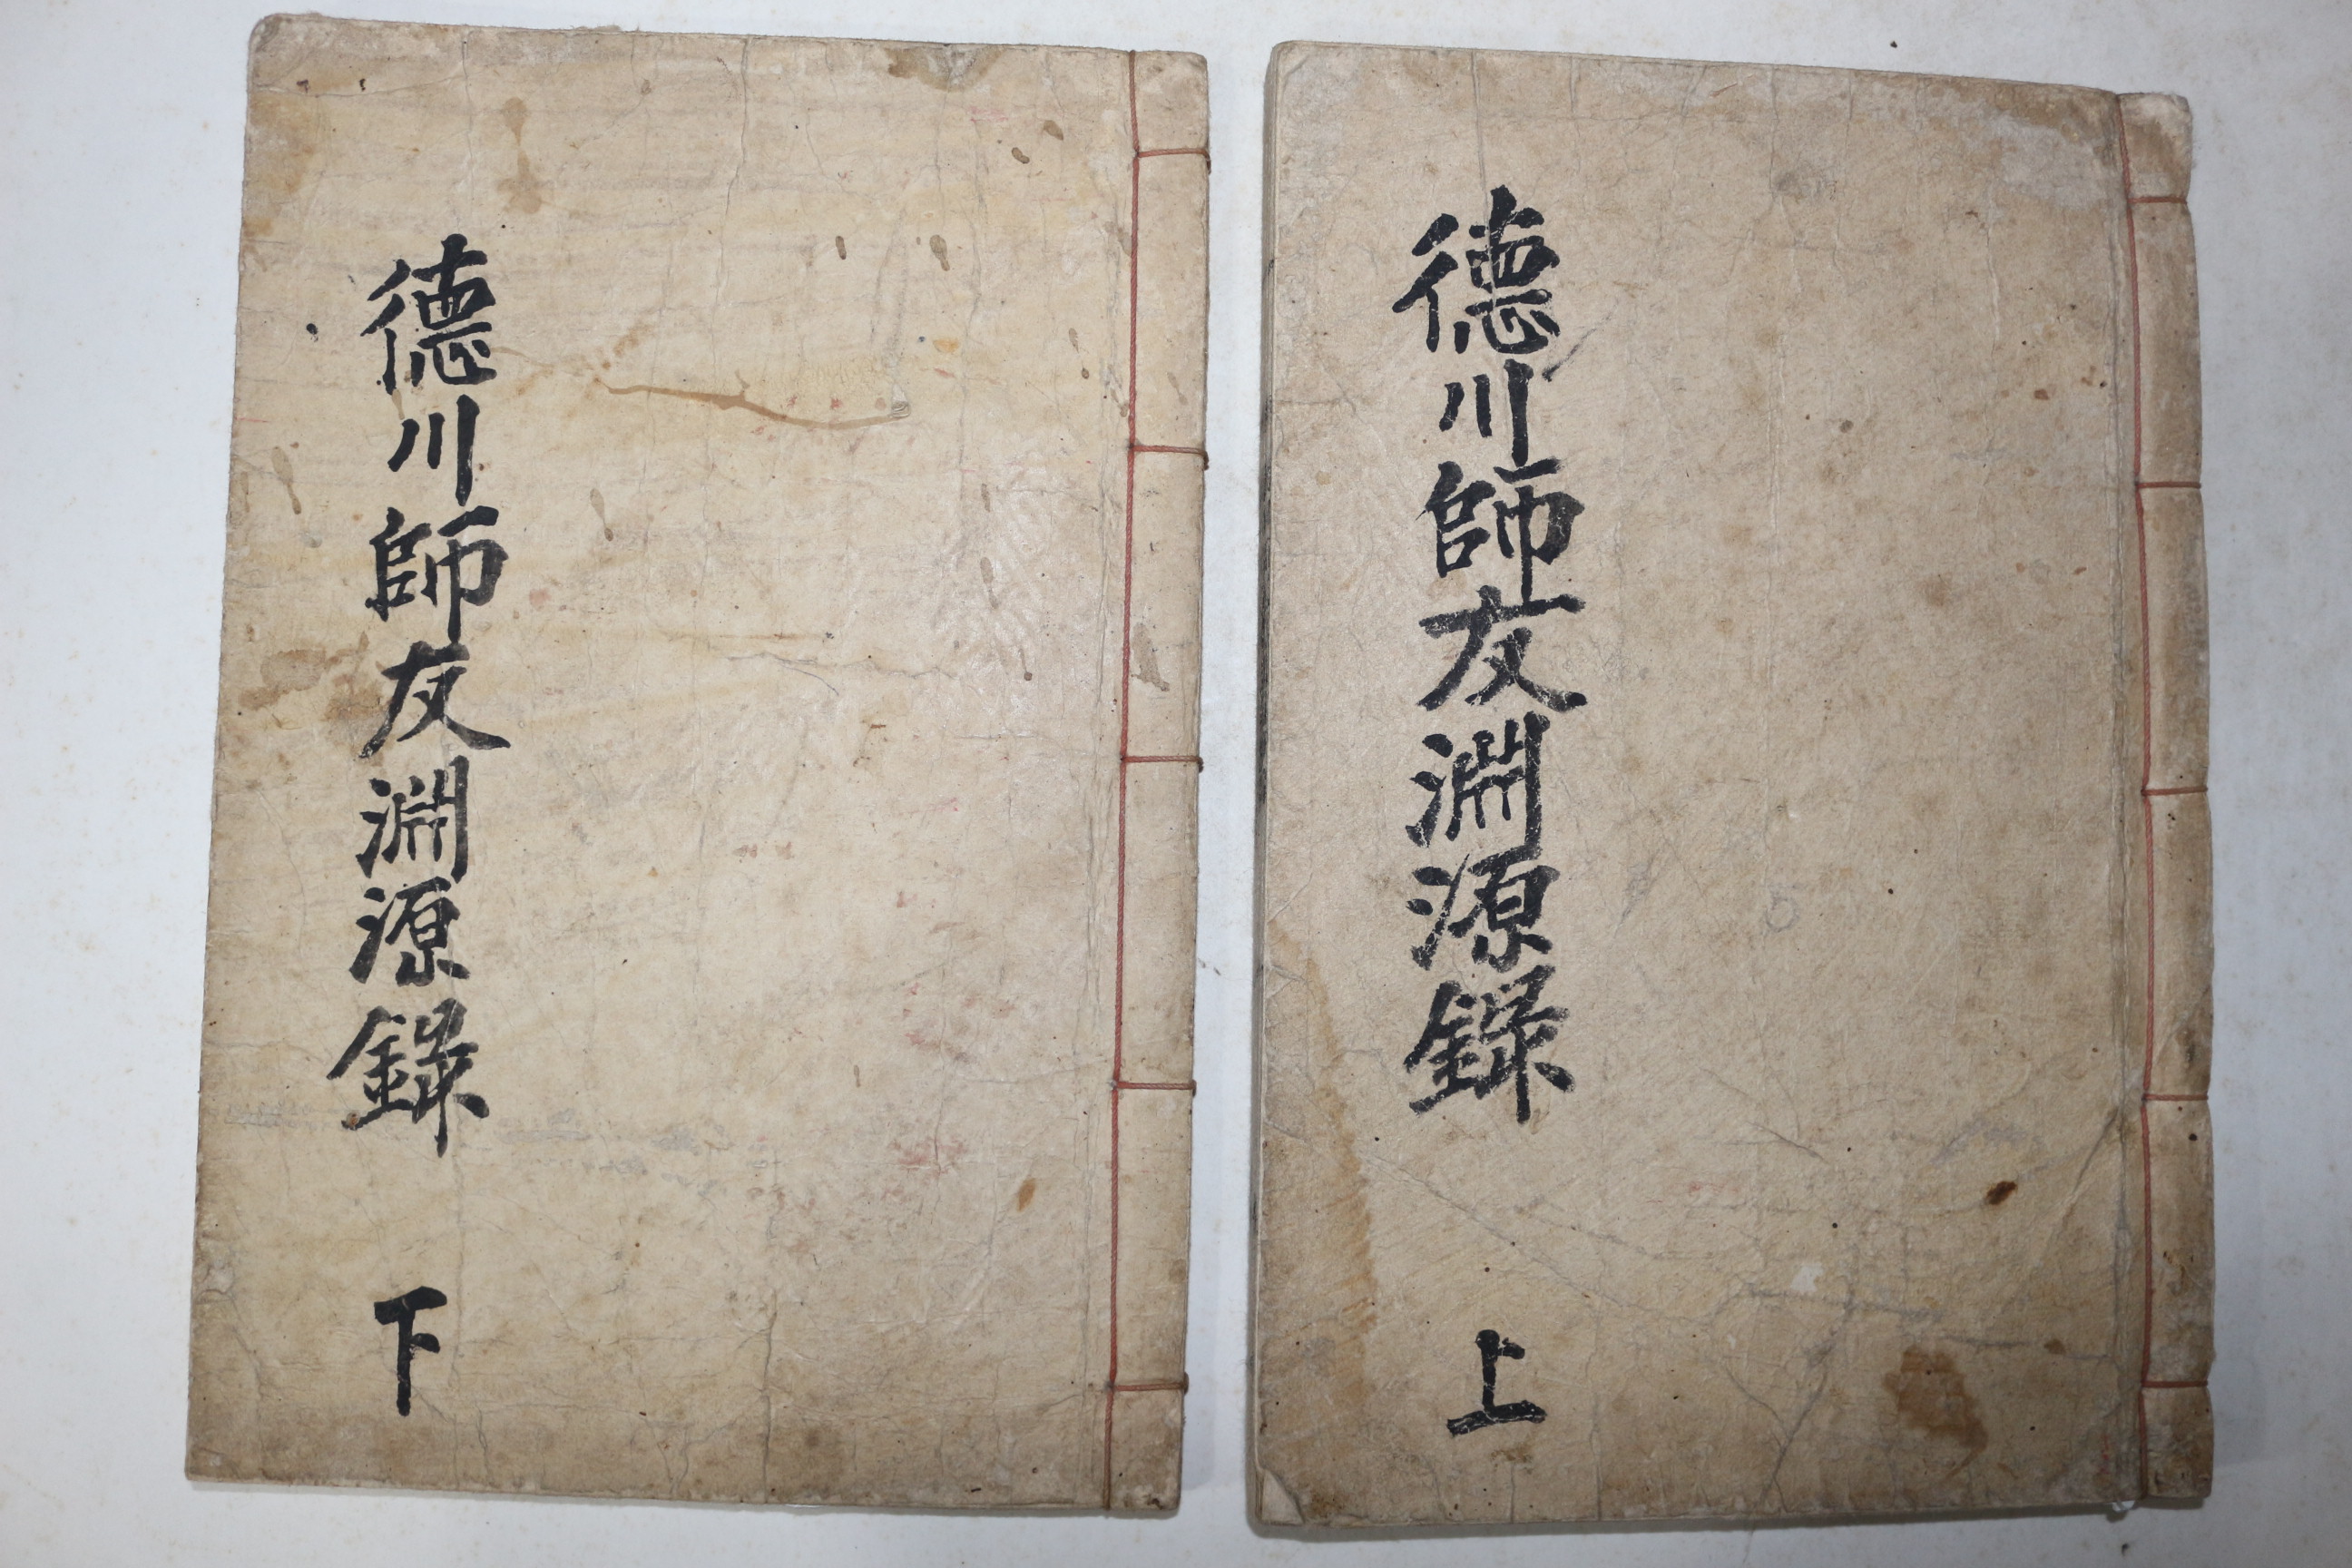 德川師友淵源錄 上
德川師友淵源錄 下